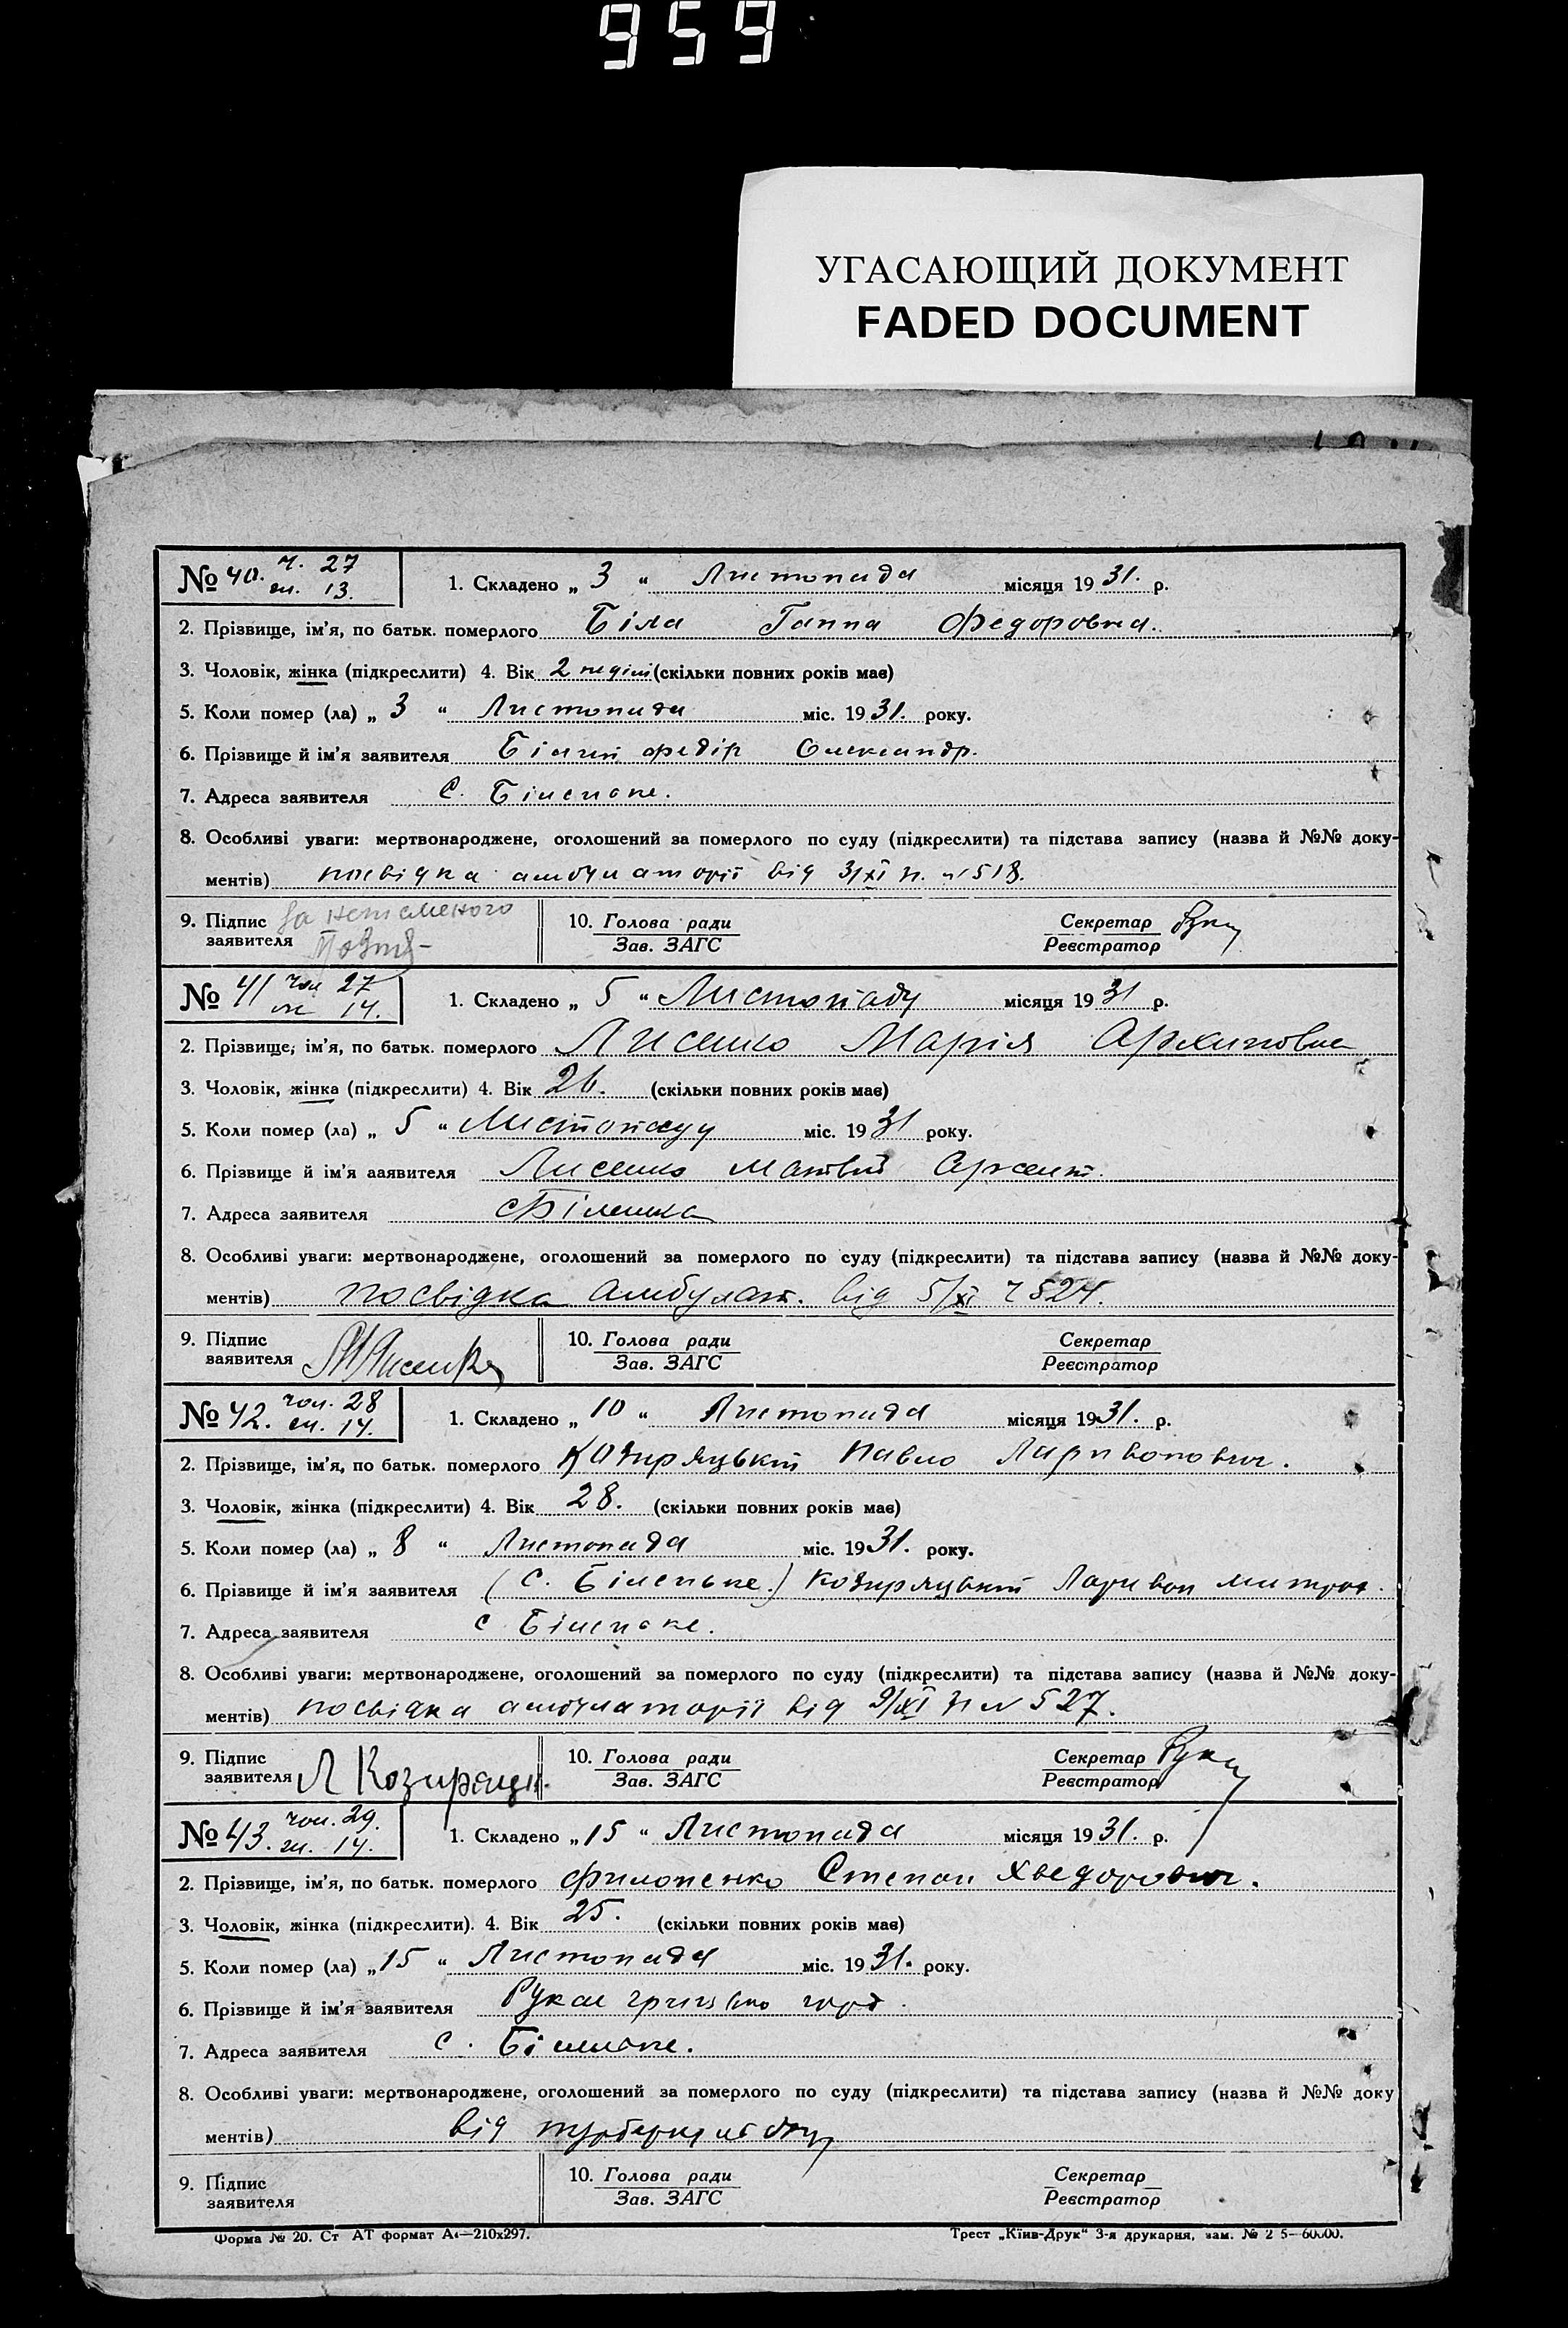 959
УГАСАЮЩИЙ ДОКУМЕНТ
FADED DOCUMENT
№ 40. ч. 27
ж. 13.
1. Складено „ 3 “ Листопада місяця 1931. р.
2. Прізвище, ім'я, по батьк. померлого Біла Ганна Федоровна.
3. Чоловік, жінка (підкреслити) 4. Вік 2 неділі (скільки повних років має)
5. Коли помер (ла) „ 3 “ Листопада міс. 1931. року.
6. Прізвище й ім'я заявителя Білий Федір Олександр.
7. Адреса заявителя С. Біленьке.
8. Особливі уваги: мертвонароджене, оголошений за померлого по суду (підкреслити) та підстава запису (назва й №№ доку-
ментів) посвідка амбулаторії від 3/XI н. № 518.
9. Підпис за неписьменого
заявителя
10. Голова ради
Зав. ЗАГС
Секретар
Реєстратор
№ 41 чол 27
ж 14.
1. Складено „ 5 “ Листопаду місяця 1931 р.
2. Прізвище, ім'я, по батьк. померлого Лисенко Марія Архиповна
3. Чоловік, жінка (підкреслити) 4. Вік 26. (скільки повних років має)
5. Коли помер (ла) „ 5 “ Листопаду міс. 1931 року.
6. Прізвище й ім'я ааявителя Лисенко Матвій Арсент.
7. Адреса заявителя с Біленька
8. Особливі уваги: мертвонароджене, оголошений за померлого по суду (підкреслити) та підстава запису (назва й №№ доку-
ментів) посвідка Амбулат. від 5/XI ч 524.
9. Підпис
заявителя М Лисенко
10. Голова ради
Зав. ЗАГС
Секретар
Реєстратор
№ 42. чол. 28
ж. 14.
1. Складено „ 10 “ Листопада місяця 1931. р.
2. Прізвище, ім'я, по батьк. померлого Козиряцький Павло Ларивонович.
3. Чоловік, жінка (підкреслити) 4. Вік 28. (скільки повних років має)
5. Коли помер (ла) „ 8 “ Листопада міс. 1931. року.
6. Прізвище й ім'я заявителя (С. Біленьке.) Козиряцький Ларивон Митроф.
7. Адреса заявителя с Біленьке.
8. Особливі уваги: мертвонароджене, оголошений за померлого по суду (підкреслити) та підстава запису (назва й №№ доку-
ментів) посвідка амбулаторії від 9/XI н № 527.
9. Підпис
заявителя Л Козиряцьк.
10. Голова ради
Зав. ЗАГС
Секретар
Реєстратор
№ 43. чол. 29.
ж. 14.
1. Складено „ 15 “ Листопада місяця 1931. р.
2. Прізвище, ім'я, по батьк. померлого Филоненко Степан Хведорович.
3. Чоловік, жінка (підкреслити). 4. Вік 25. (скільки повних років має)
5. Коли помер (ла) „ 15 “ Листопада міс. 1931. року.
6. Прізвище й ім'я заявителя
7. Адреса заявителя с. Біленьке.
8. Особливі уваги: мертвонароджене, оголошений за померлого по суду (підкреслити) та підстава запису (назва й №№ доку
ментів) від туберкульозу
9. Підпис
заявителя
10. Голова ради
Зав. ЗАГС
Секретар
Реєстратор
Форма № 20. Ст АТ формат А4—210х297.
Трест „Київ-Друк“ 3-я друкарня, зам. №